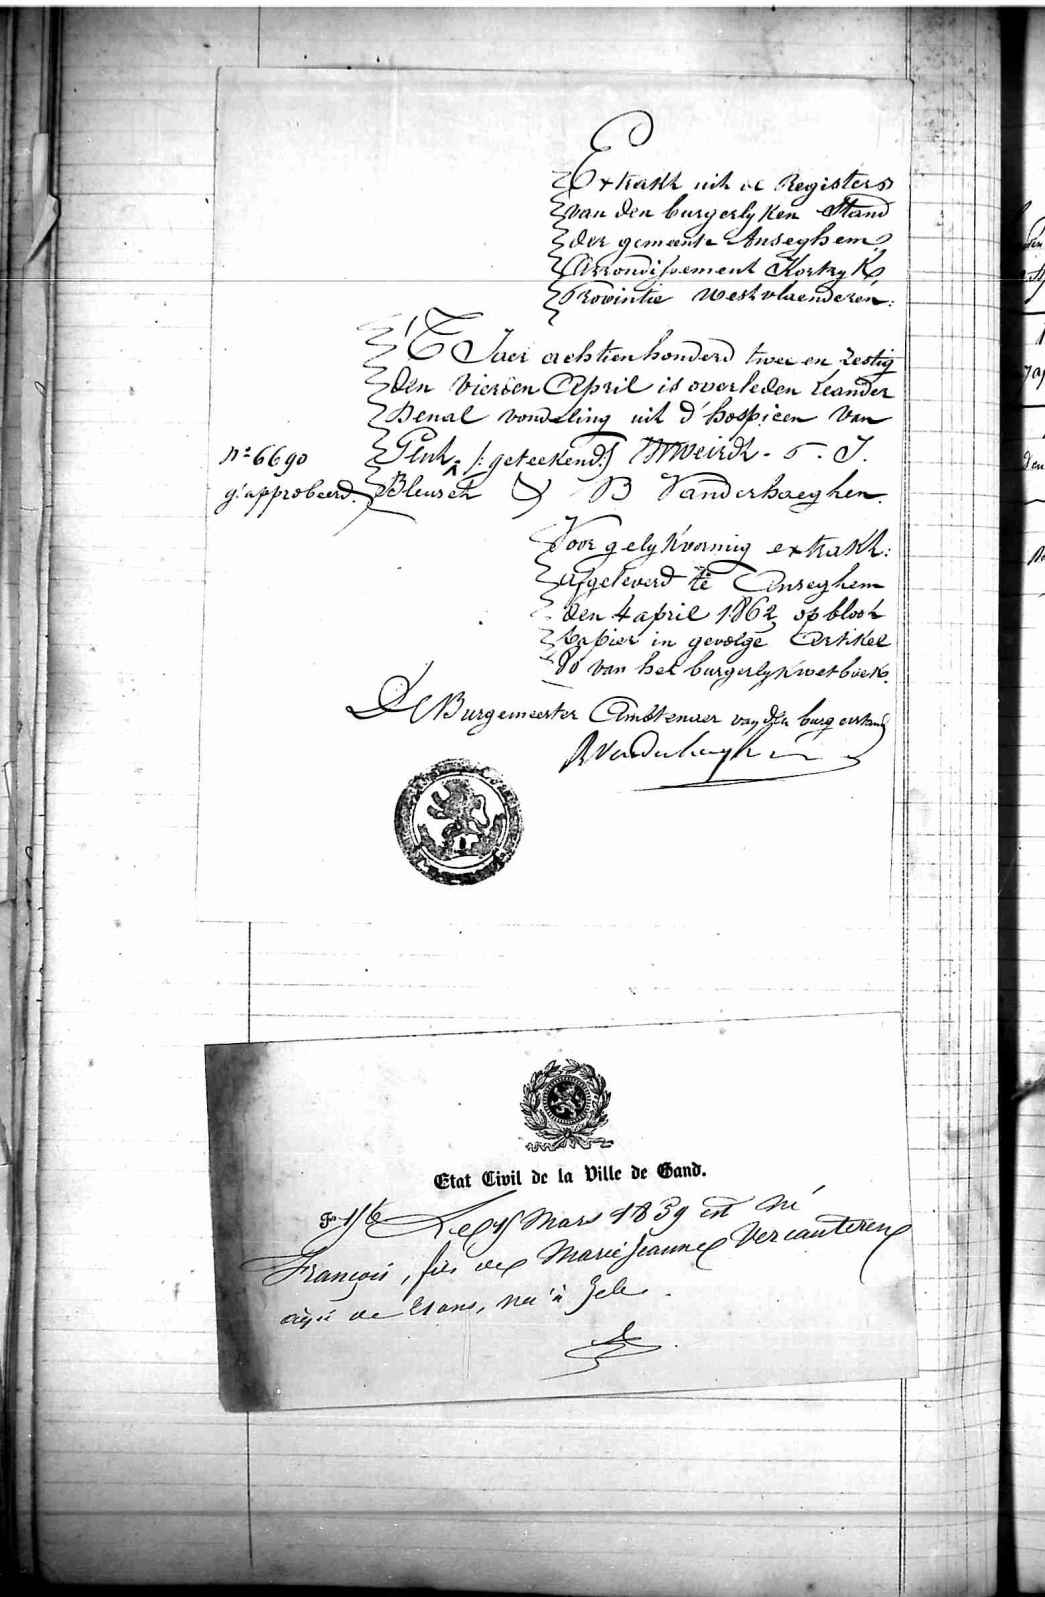 Extrakt uit de Registers
van den burgerlyken Stand
der gemeente Anseghem,
Arrondissement Kortryk,
Provintie Westvlaenderen:
T Jaer achtienhonderd twee en zestig
den vierden April is overleden Leander
Denal vondeling uit d'hospicen van
Gent /:geteekend:/ - J.
n.° 6690
g'approbeerd.
B Vanderhaeghen.
Voor gelykvormig extrakt:
afgeleverd te Anseghem
den 4 april 1862, op bloot
papier in gevolge Artikel
80 van het burgerlyk wetboek.
De Burgemeester Ambtenaer van den burgerstand
BVanderhaeghen
Etat Civil de la Ville de Gand.
Le 15 Mars 1839 est né
François, fils de Marie Jeanne Vercauteren
agée de 21 ans, née à